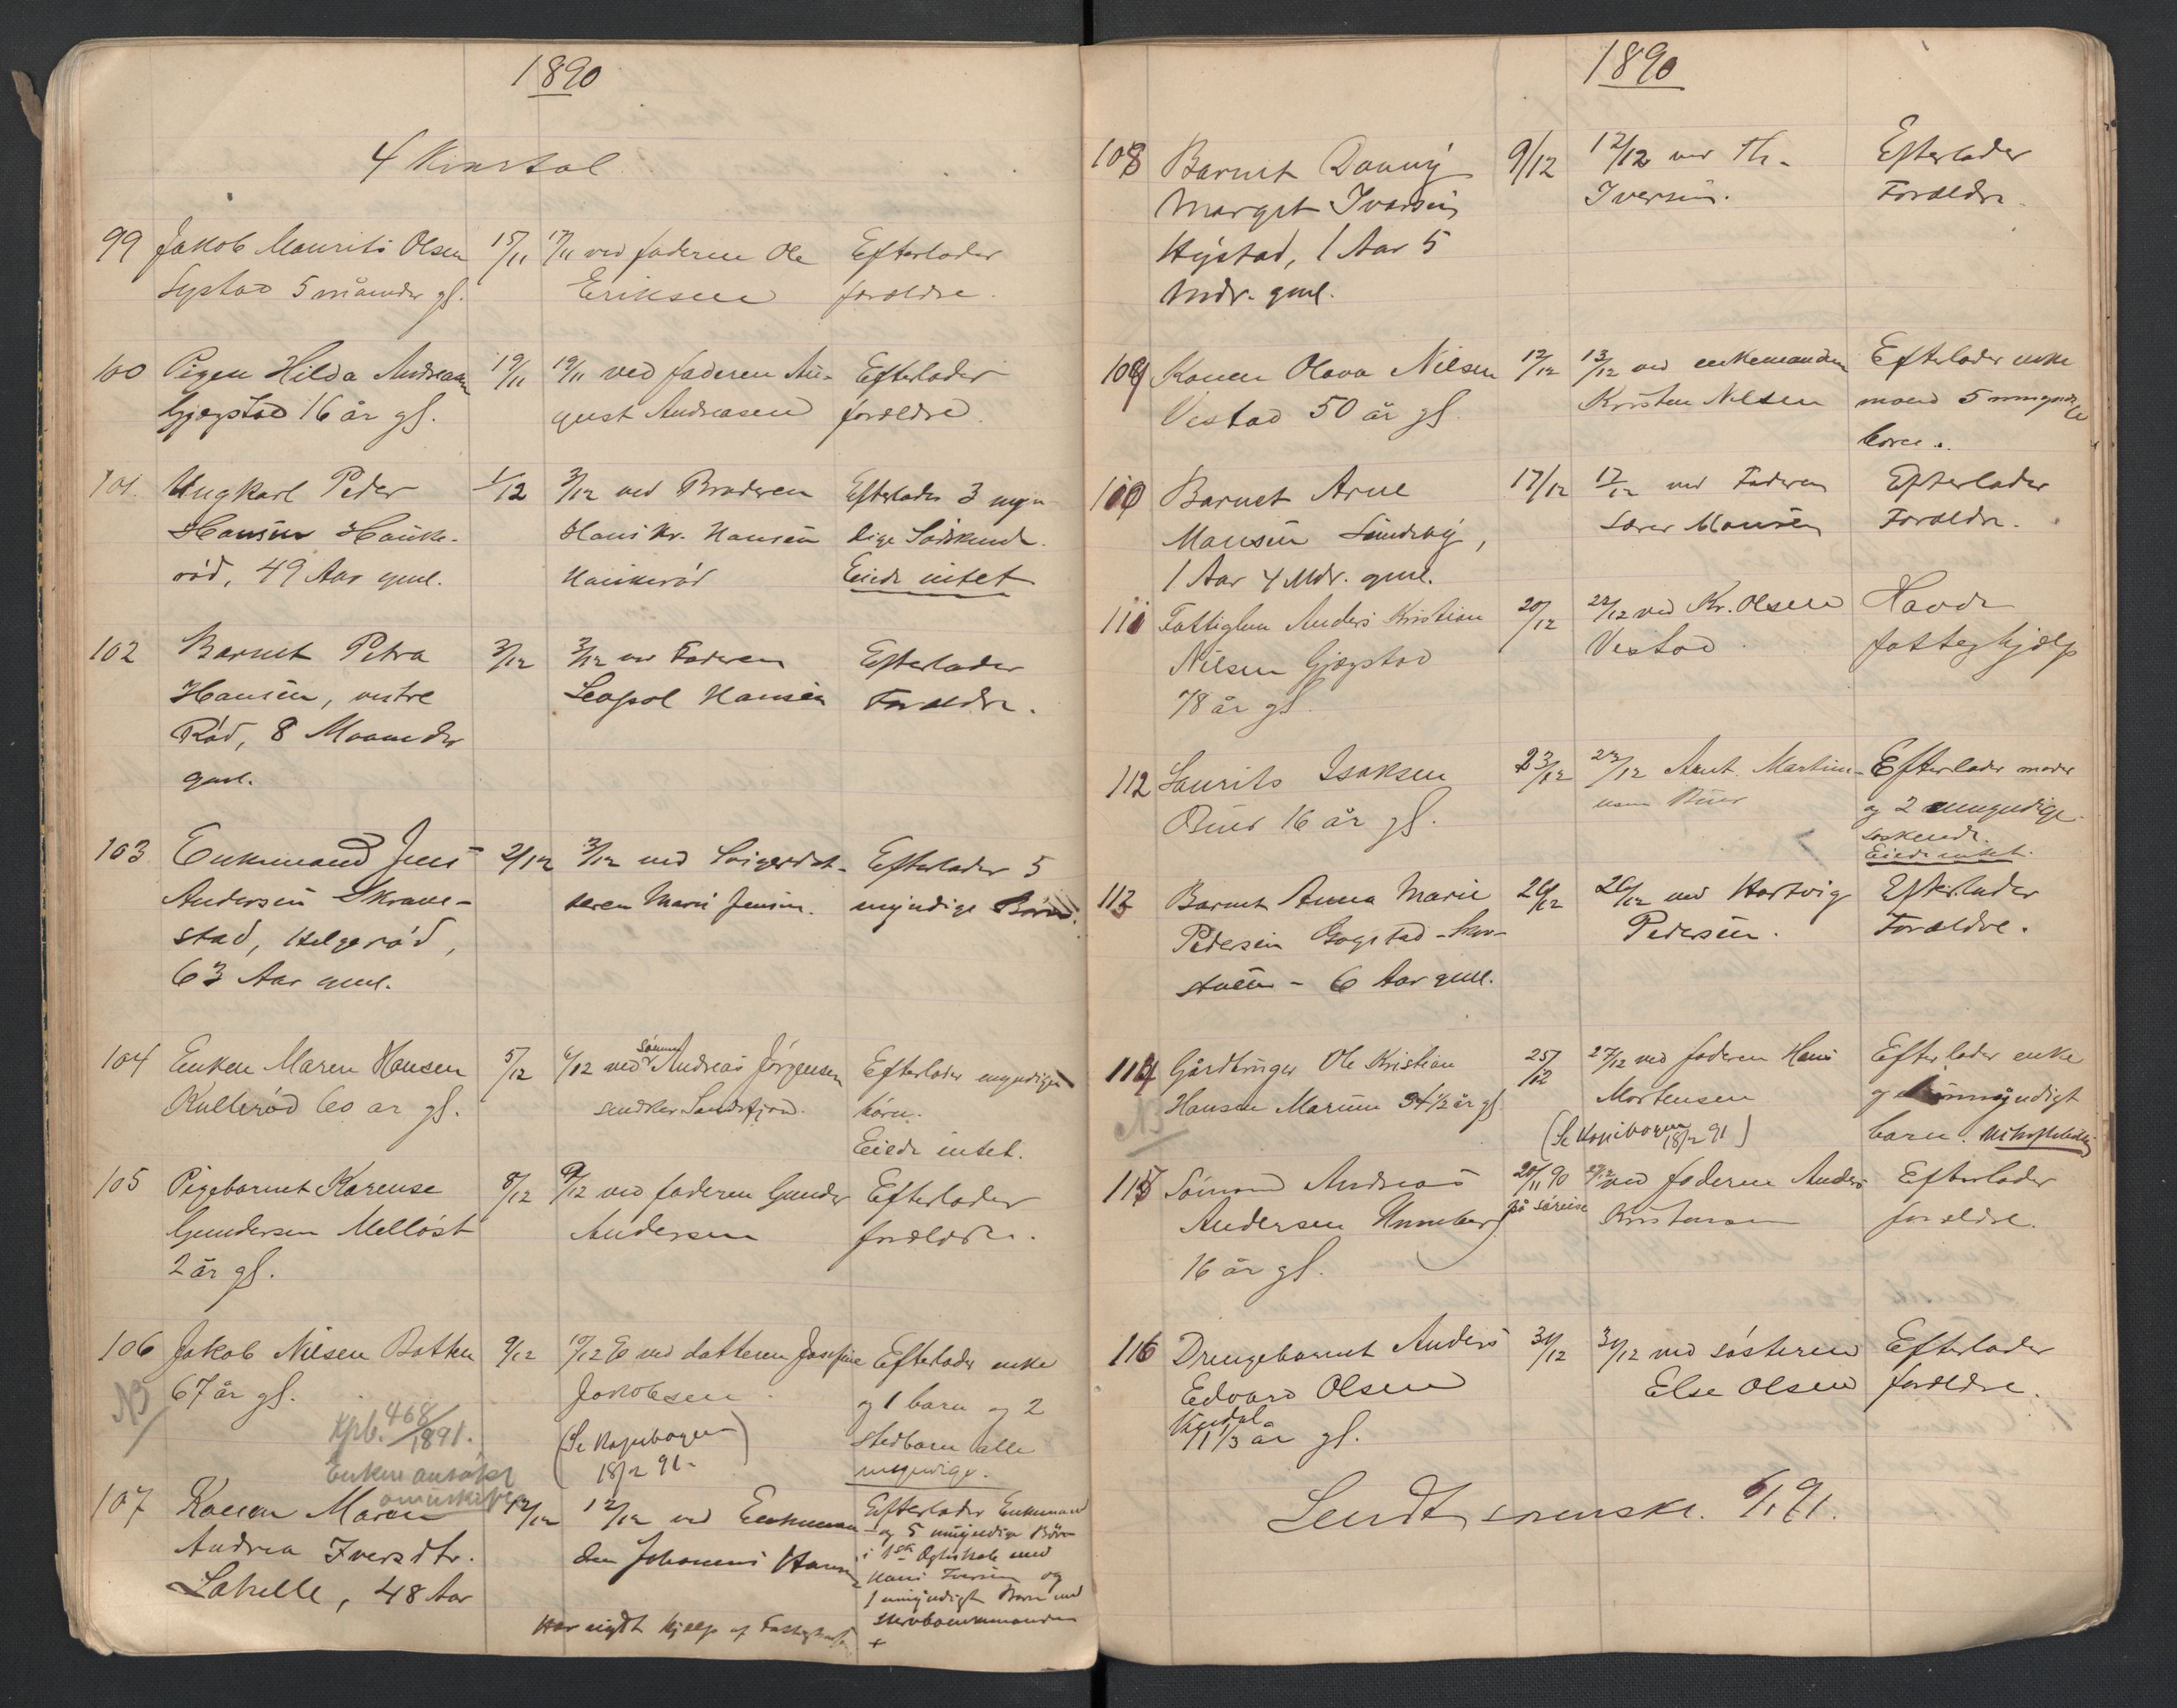 1890
4 Kvartal
99 Jakob Maurits Olsen 15/11 17/11 ved faderen Ole Efterlader
5 måneder gl. Eriksen forældre.
100 Pigen Hilda Andreasen 19/11 19/11 ved faderen Au- Efterlader
Gjegstad 16 år gl. gust Andreasen forældre.
101. Ungkarl Peder 1/12 3/12 ved Broderen Efterlader 3 myn-
Hansen Hauke- Hans Kr. Hansen dige Södskende.
röd, 49 Aar gml. Haukeröd Eiede intet
102 Barnet Petra 3/12 3/12 ved Faderen Efterlader
Hansen, vestre Leopol Hansen Forældre.
Röd, 8 Maaneder
gml.
103 Enkemand Jens 2/12 3/12 ved Svigerdat- Efterlader 5
Andersen Skrave- teren Marie Jensen. myndige Börn.
stad, Helgeröd,
63 Aar gml.
104 Enken Maren Hansen 5/12 6/12 ved sönnen Andreas Jörgensen Efterlader myndige
Kulleröd 60 år gl. Sandefjord. börn.
Eiede intet.
105 Pigebarnet Karense 8/12 9/12 ved faderen Gunder Efterlader
Gundersen Melløst Andersen forældre.
2 år gl.
106 Jakob Nilsen Botten 9/12 10/12 90 ved datteren Josefine Efterlader enke
67 år gl. Jakobsen og 1 barn og 2
NB Kpb. 468/1891. (Se Kopibogen stedbarn alle
18/2 91- myndige.
Enken ansøkt
107 Konen Maren 12/12 12/12 ved Enkeman- Efterlader Enkemand
Andrea Iversdtr. den Johannes Hansen og 5 myndige Börn
Lahelle, 48 Aar i 1ste Ægteskab med
Hans Iversen og
1 umyndigt Barn med
Har nydt hjælp af
+
1890
108 Barnet Dagny 9/12 12/12 ved Th. Efterlader
Margit Ivarsen Iversen. Forældre.
Hystad, 1 Aar 5
Mdr. gml.
109 Konen Olava Nilsen 12/12 13/12 ved enkemanden Efterlader enke
Vestad 50 år gl. Kristen Nilsen mand 5 umyndige
börn.
110 Barnet Arne 17/12 17/12 ved Faderen Efterlader
Mausen Sundby, Mausen Forældre.
1 Aar 4 Mdr. gml.
111 Fattiglem Anders Kristian 20/12 22/12 ved Kr. Olsen Havde
Nilsen Gjegstad Vestad fattighjelp
78 år gl.
112 Laurits Isaksen 23/12 24/12 Arnt Martin- Efterlader moder
Buer 16 år gl. usen Buer og 2 umyndige
søskende.
Eiede intet.
113 Barnet Anna Marie 26/12 26/12 ved Hartvig Efterlader
Pedersen Gogstad - Pedersen. Forældre.
stuen - 6 Aar gml.
114 Gårdbruger Ole Kristian 25/12 27/12 ved faderen Hans Efterlader enke
Hansen Marum 34 1/2 år gl. Mortensen og 1 umyndigt
NB (Se Kopibogen 18/2 91) barn.
115 Sömand Andreas 20/11 90 ved faderen Anders Efterlader
Andersen Unneberg på søreise Kristensen forældre.
16 år gl.
116 Drengebarnet Anders 31/12 31/12 ved søsteren Efterlader
Edvard Olsen Else Olsen forældre.
1 1/3 år gl.
Sendt sorenskr. 6/1 91.